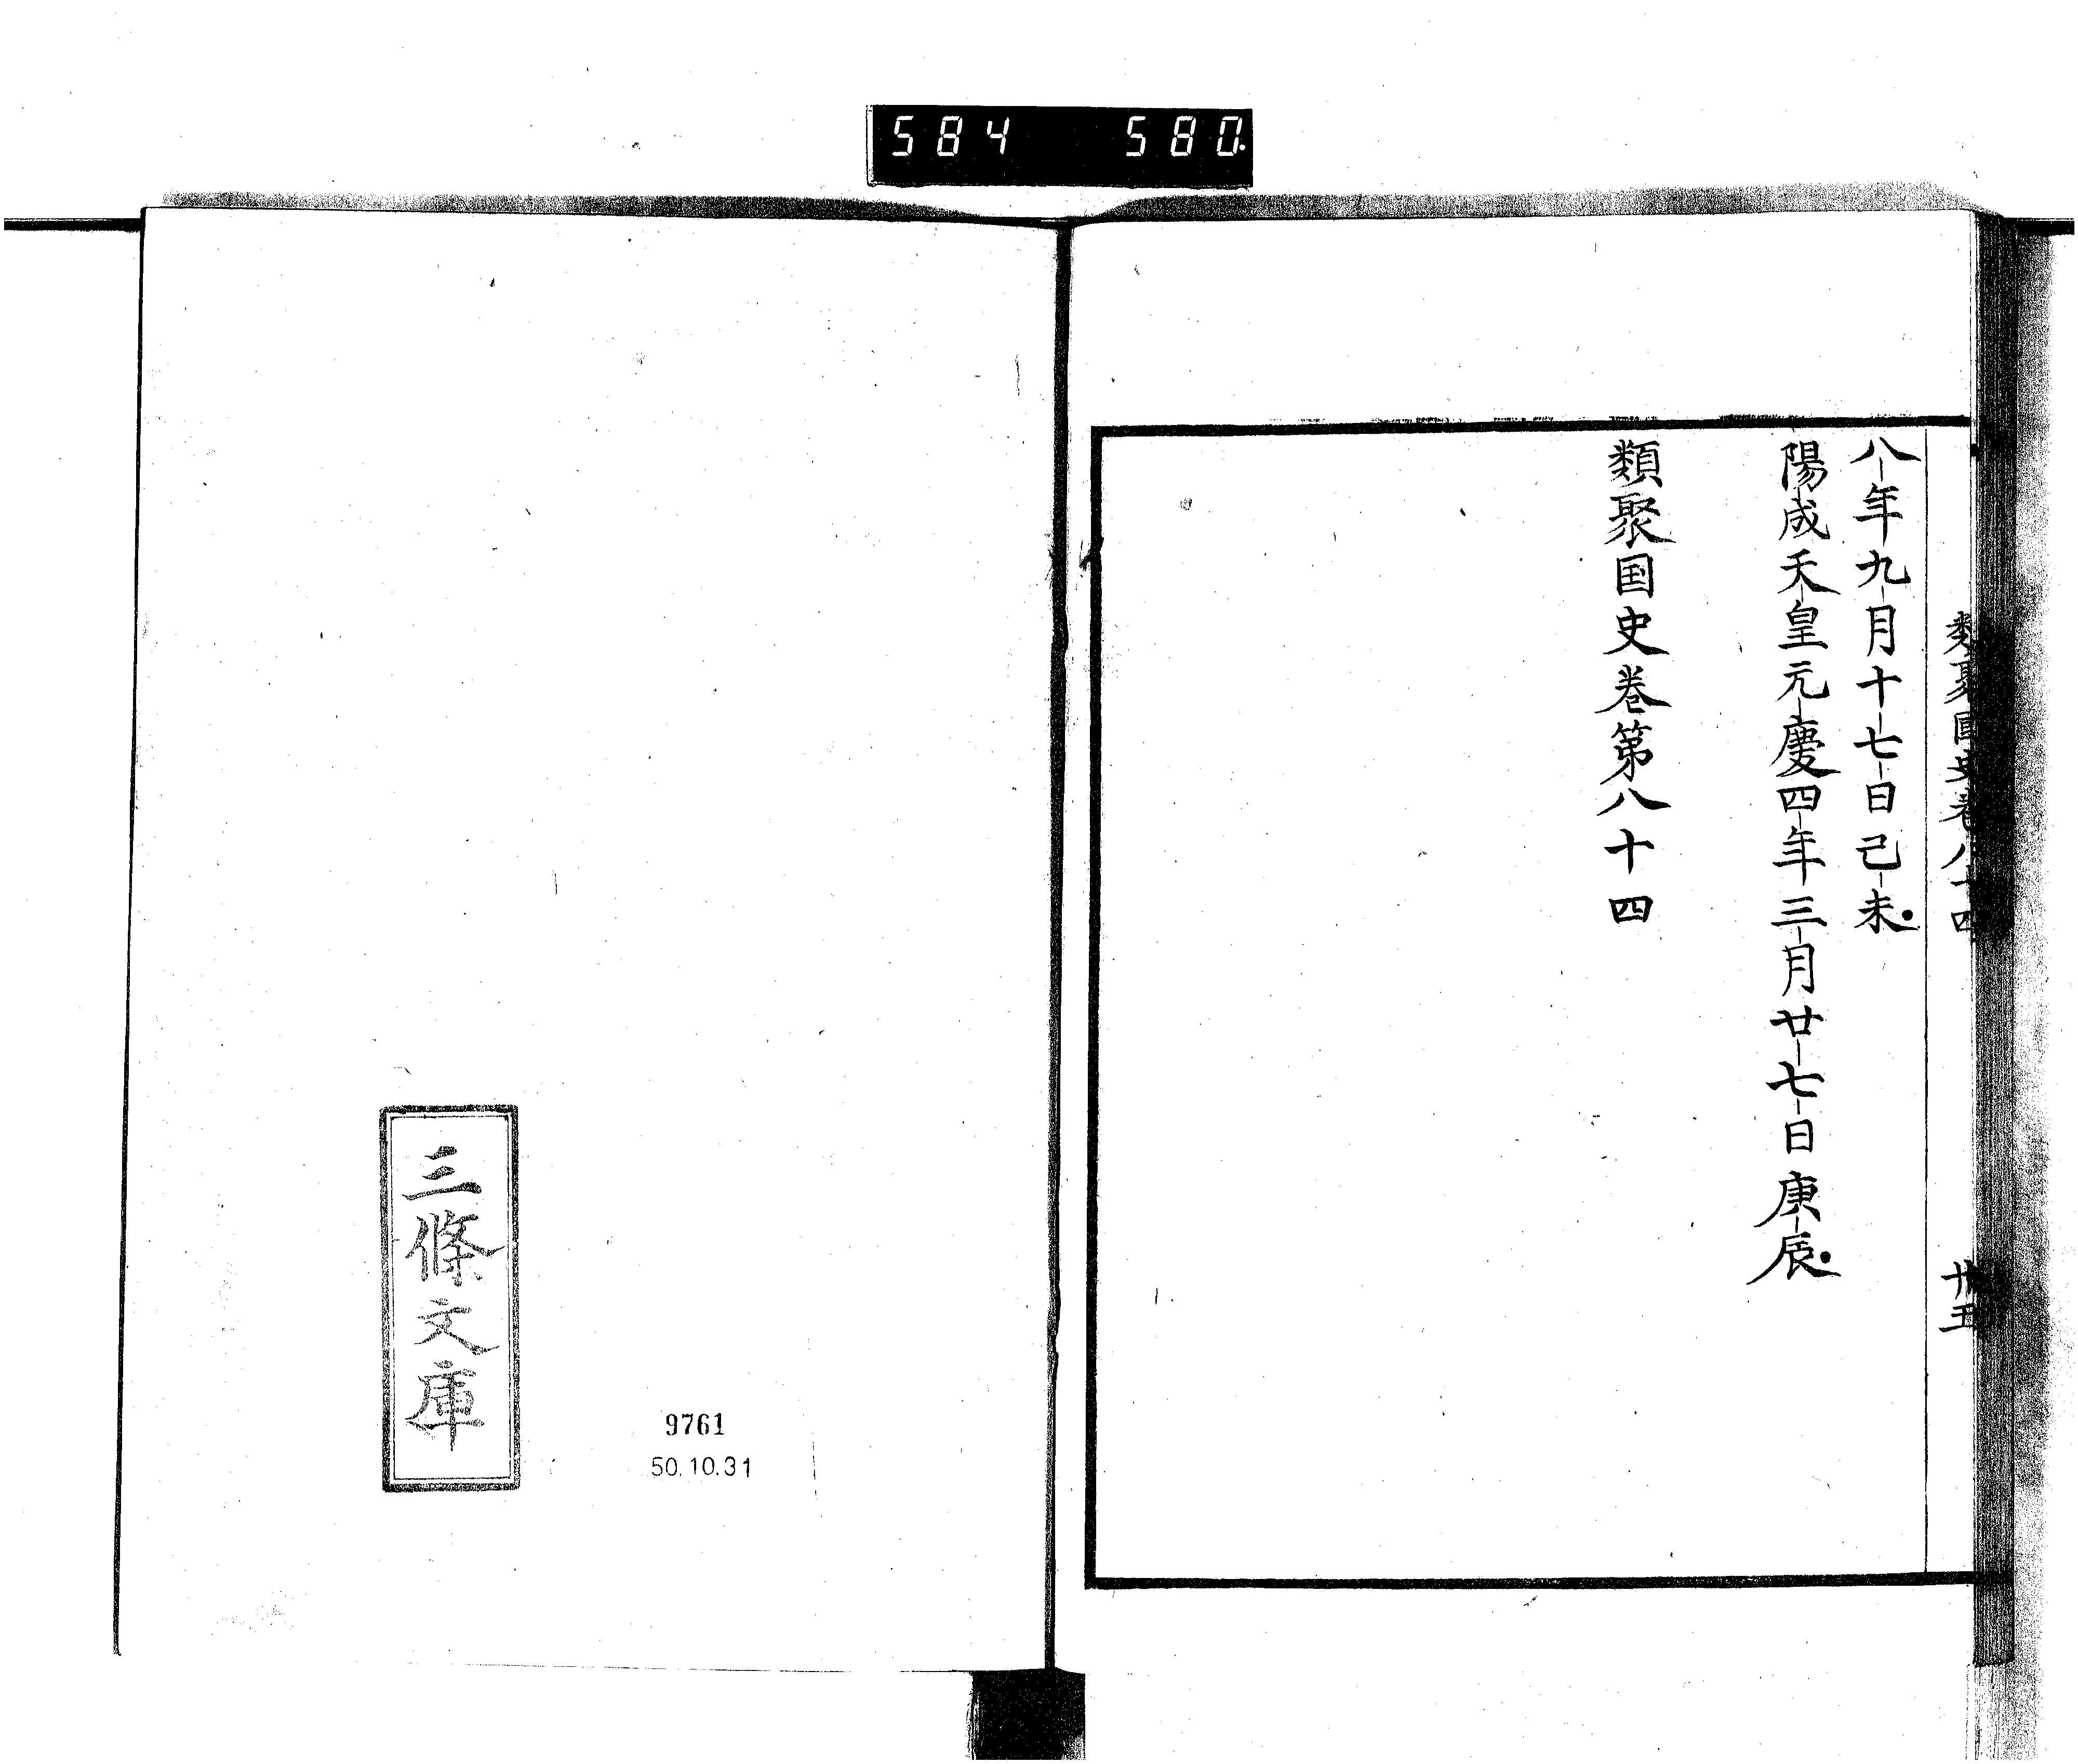 584 580.
類聚國史卷八十四 卅五
八年九月十七日己未
陽成天皇元慶四年三月廿七日庚辰
類聚国史卷第八十四
三條文庫
9761
50.10.31